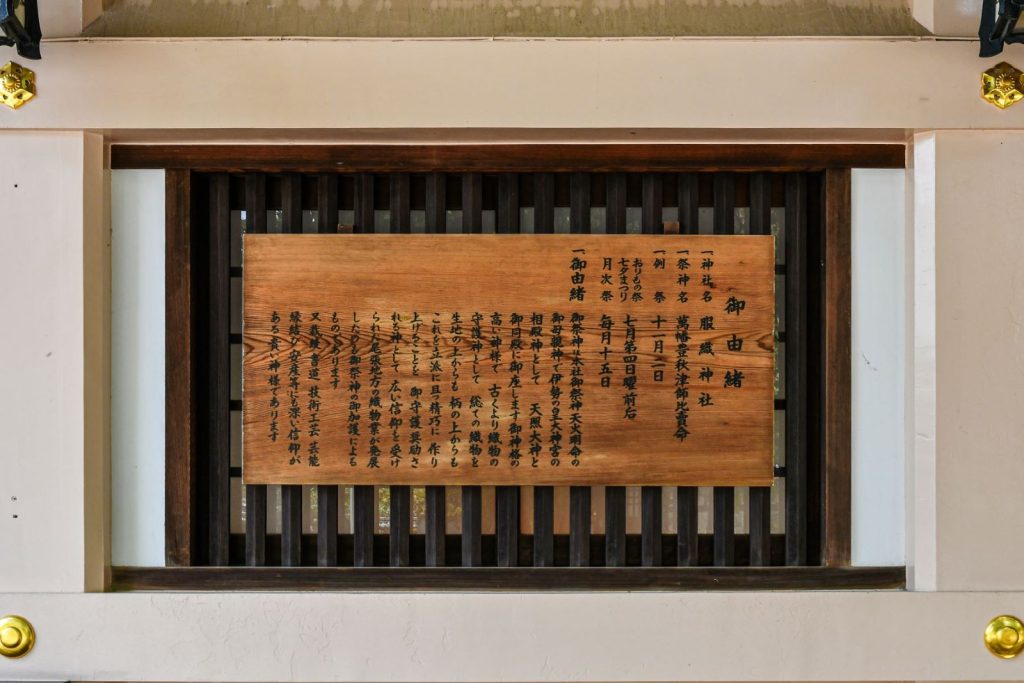 御由緒
一神社名 服織神社
一祭神名 萬幡豊秋津師比賣命
一例祭 十一月二日
おりもの祭
七夕まつり 七月第四日曜前后
月次祭 毎月十五日
一御由緒 御祭神は本社御祭神天火明命の
御母親神で伊勢の皇大神宮の
相殿神として 天照大神と
御同殿に御座します御神格の
高い神様で 古くより織物の
守護神として 総ての織物を
生地の上からも 柄の上からも
これを立派に且つ精巧に 作り
上げることを 御守護奨励さ
れる神として 広い信仰を受け
られ尾張地方の織物業が発展
したのも御祭神の御加護による
ものであります
又裁縫 書道 技術工芸 芸能
縁結び 安産等にも深い信仰が
ある貴い神様であります